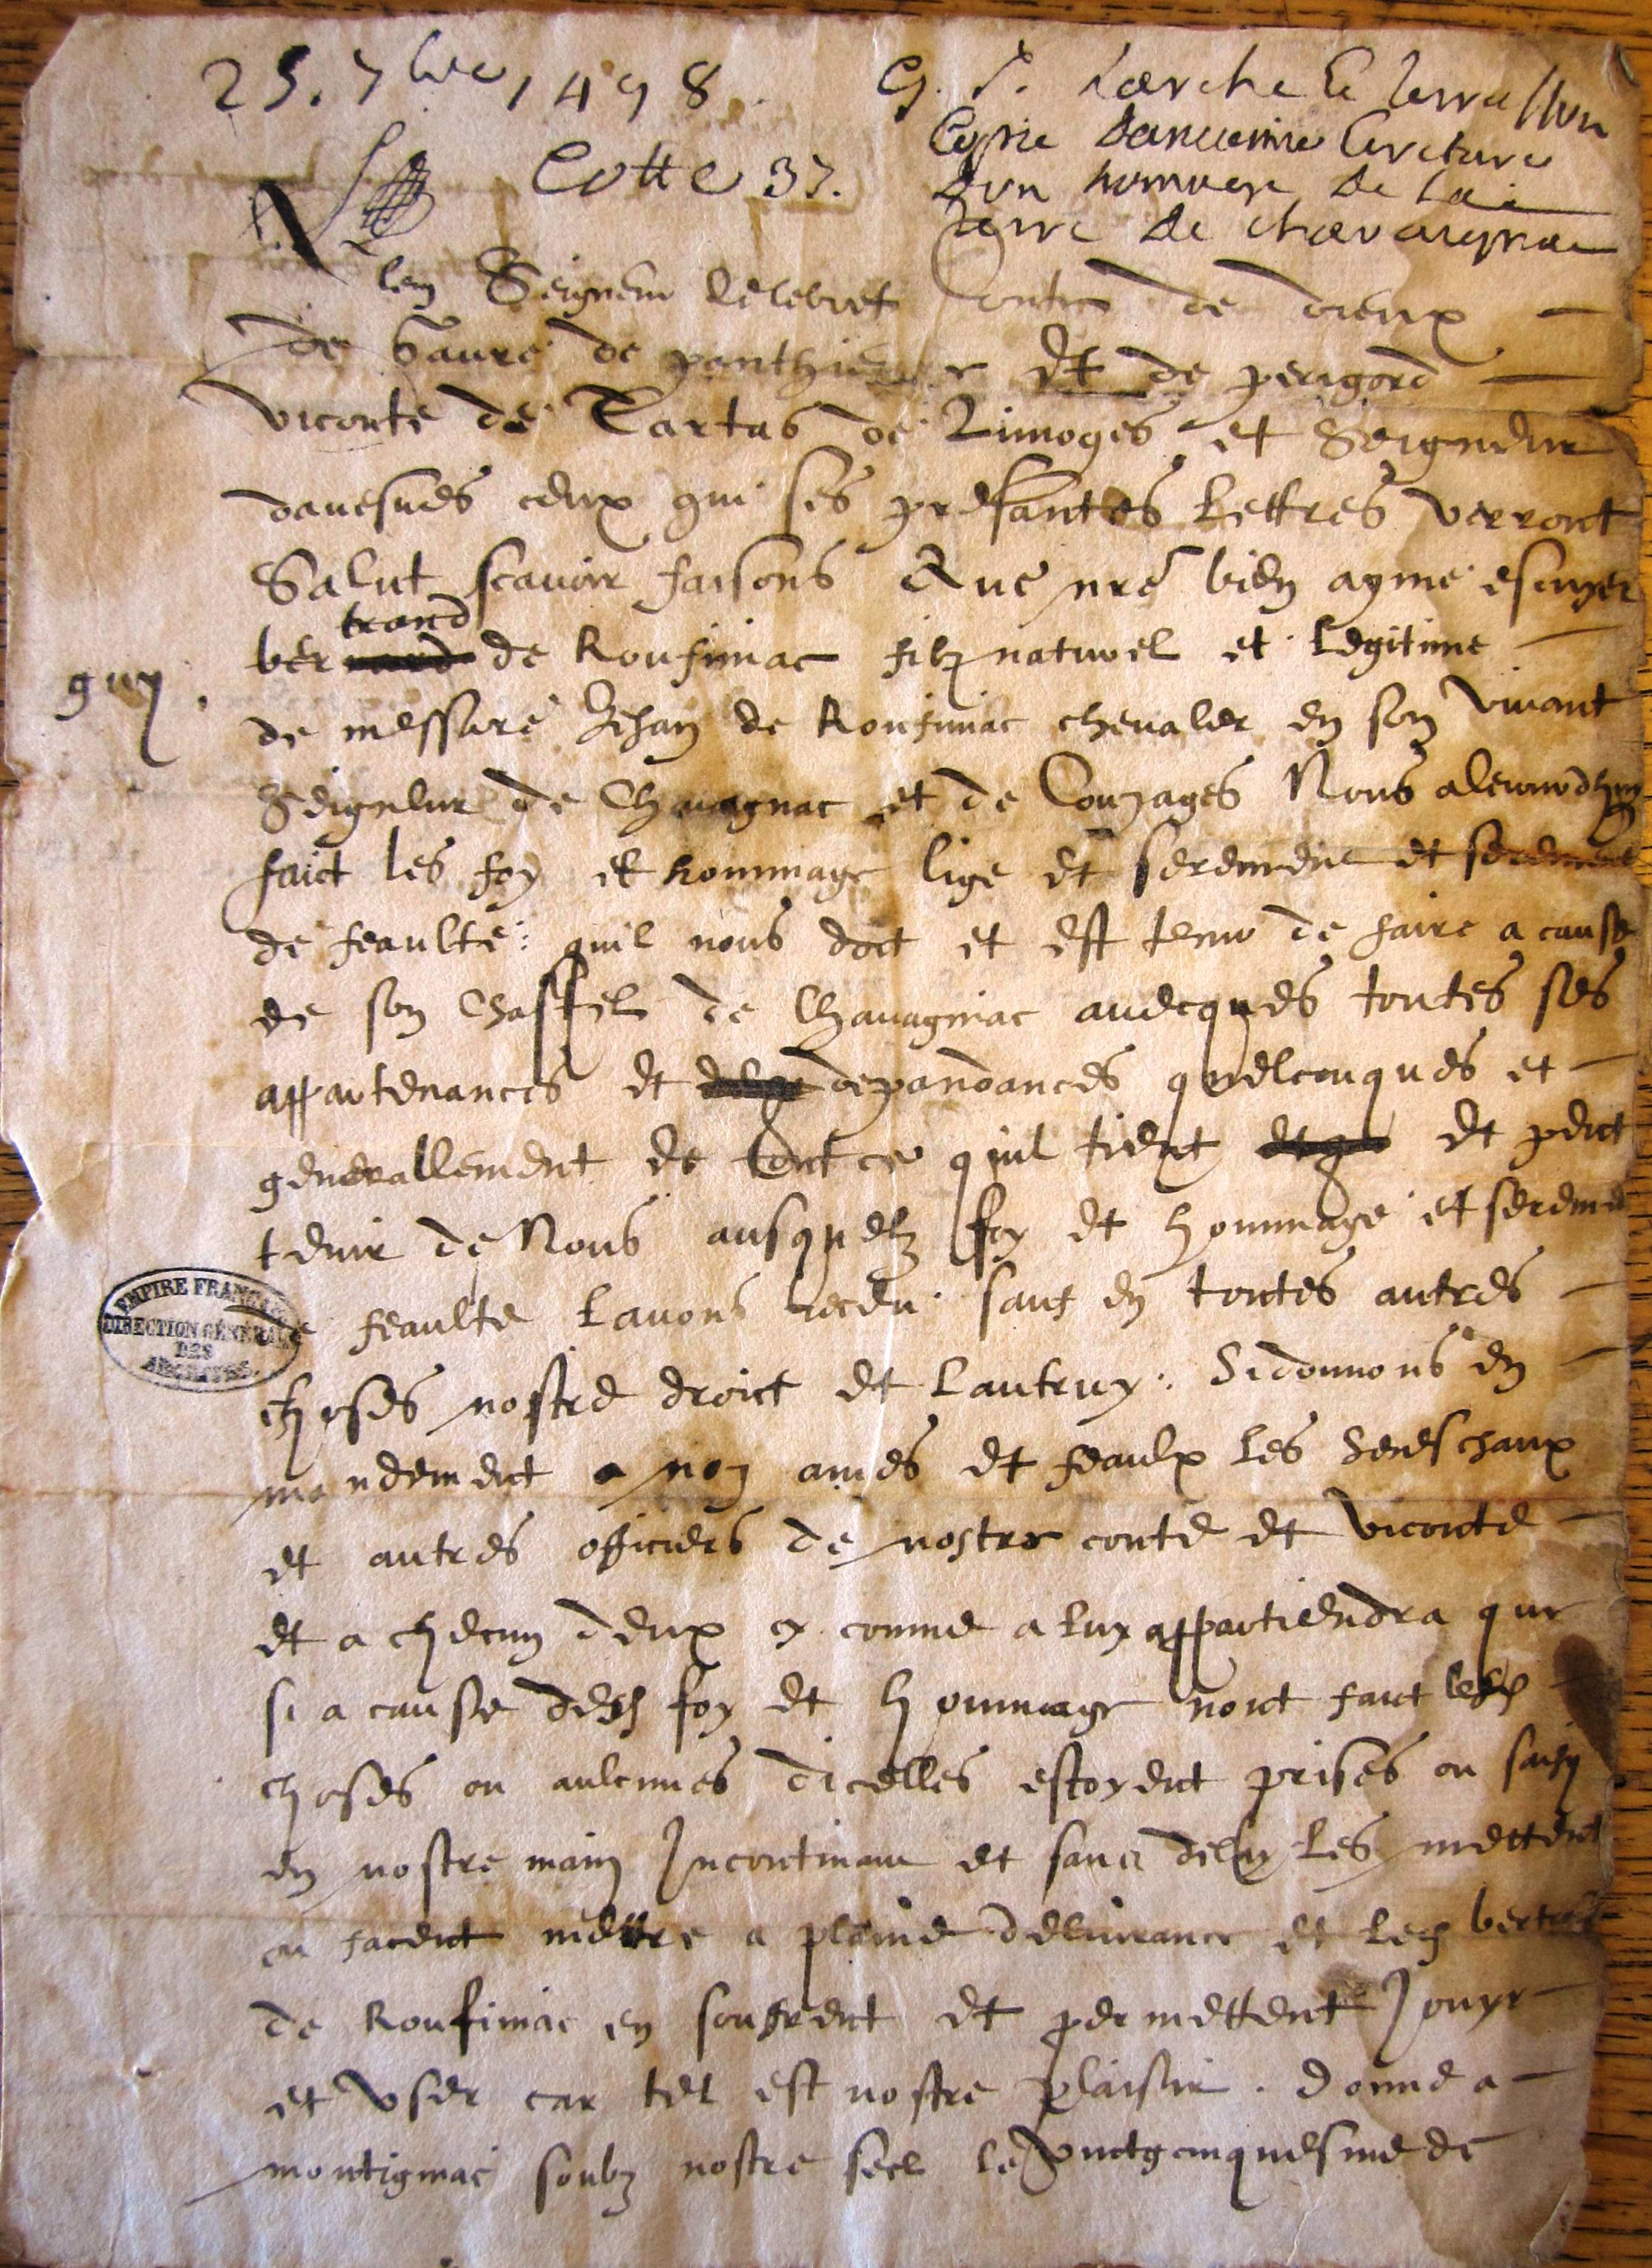 25. 7bre 1498. G. P. Larche le Terrasson
Cotte 37. Copie dancienne Ecreture
dun hommage de la
terre de chavaignac
Seigneur delebret Conte de dreux
de Gaure de ponthieure et de perigord
viconte de Tartas de Limoges et Seigneur
davesnes ceux qui ses presantes lettres verront
Salut scavoir faisons Que nre bien ayme escuyer
bertrand de Roufiniac filz naturel et legitime
guy.
de messire Jehan de Roufiniac chevaler en son vivant
Seigneur de Chavagnac et de Couzages Nous a
faict les foy et hommage lige et serement et serement
de feaulte: quil nous doct et est tenu de faire a cause
de son Chastel de Chavagniac avecques toutes ses
appartenances et depandances quelconques et
generallement de tout ce quil tient et peut
tenir de Nous ausquelz foy et hommage et sereme
de feaulte lavons receu sauf en toutes autres
EMPIRE FRANÇAIS
DIRECTION GÉNÉRALE
DES
ARCHIVES
choses nostre droict et lautruy. Si donnons en
mandement a noz ames et feaulx les Seneschaux
et autres officiers de nostre conte et viconte
et a checun deux comme a luy appartiendra que
si a cause desd foy et hommage nont faict lesd
choses ou aulcunes dicelles estoyent prises ou saisy
en nostre main Incontinant et sans delay les mettent
ou facent mettre a plaine delivrance et led bertrand
de Roufiniac en soufrent et permettent Jouyr
et user car tel est nostre plaisir. donne a
montigniac soubz nostre seel le vinctgcinquesme de